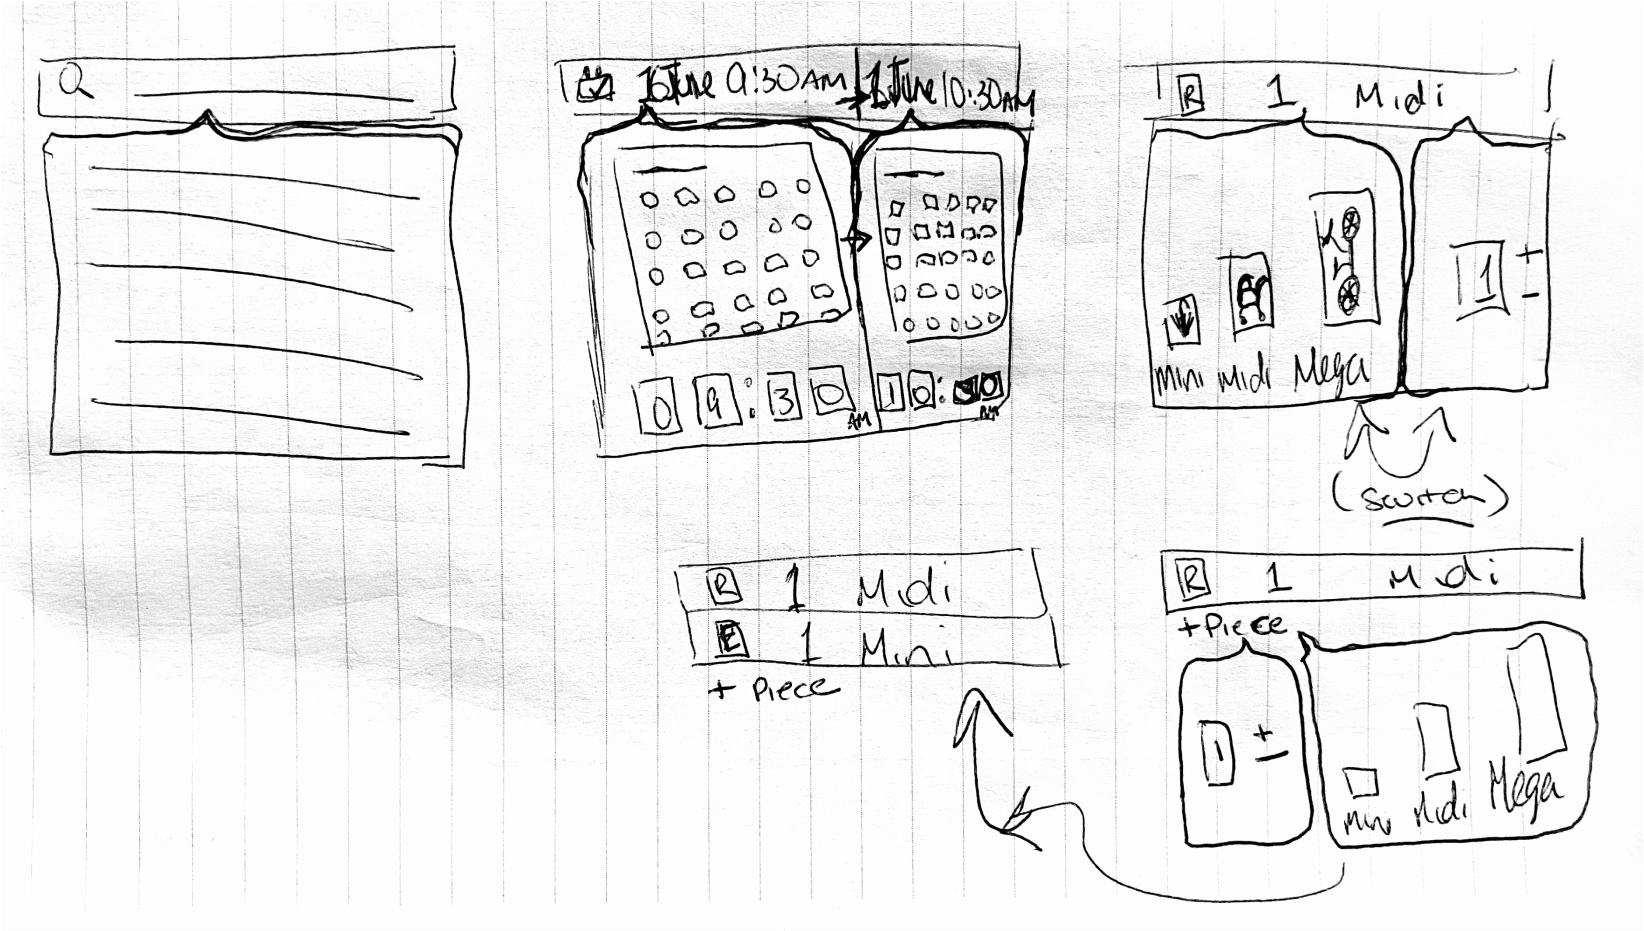 16 June 9:30 AM → 16 June 10:30 AM
09:30 AM
10:30 AM
R 1 Midi
1 + -
Mini Midi Mega
(switch)
R 1 Midi
E 1 Mini
+ Piece
R 1 Midi
+ Piece
1 + -
Mini Midi Mega